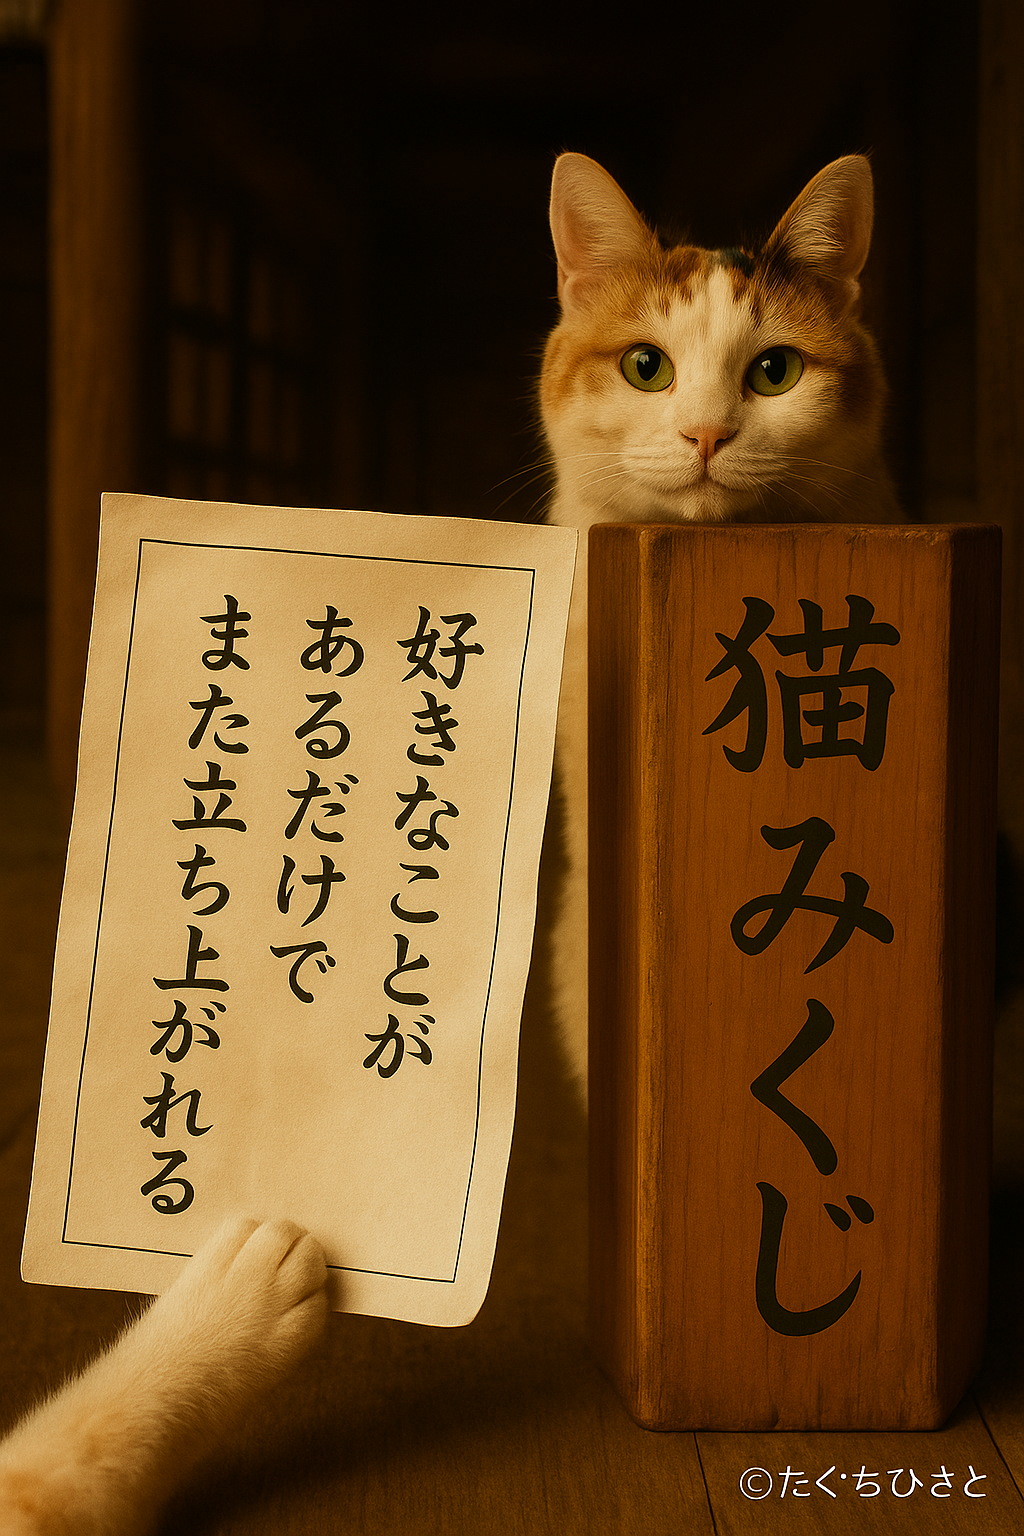 好きなことが
あるだけで
また立ち上がれる
猫みくじ
©たく・ちひさと